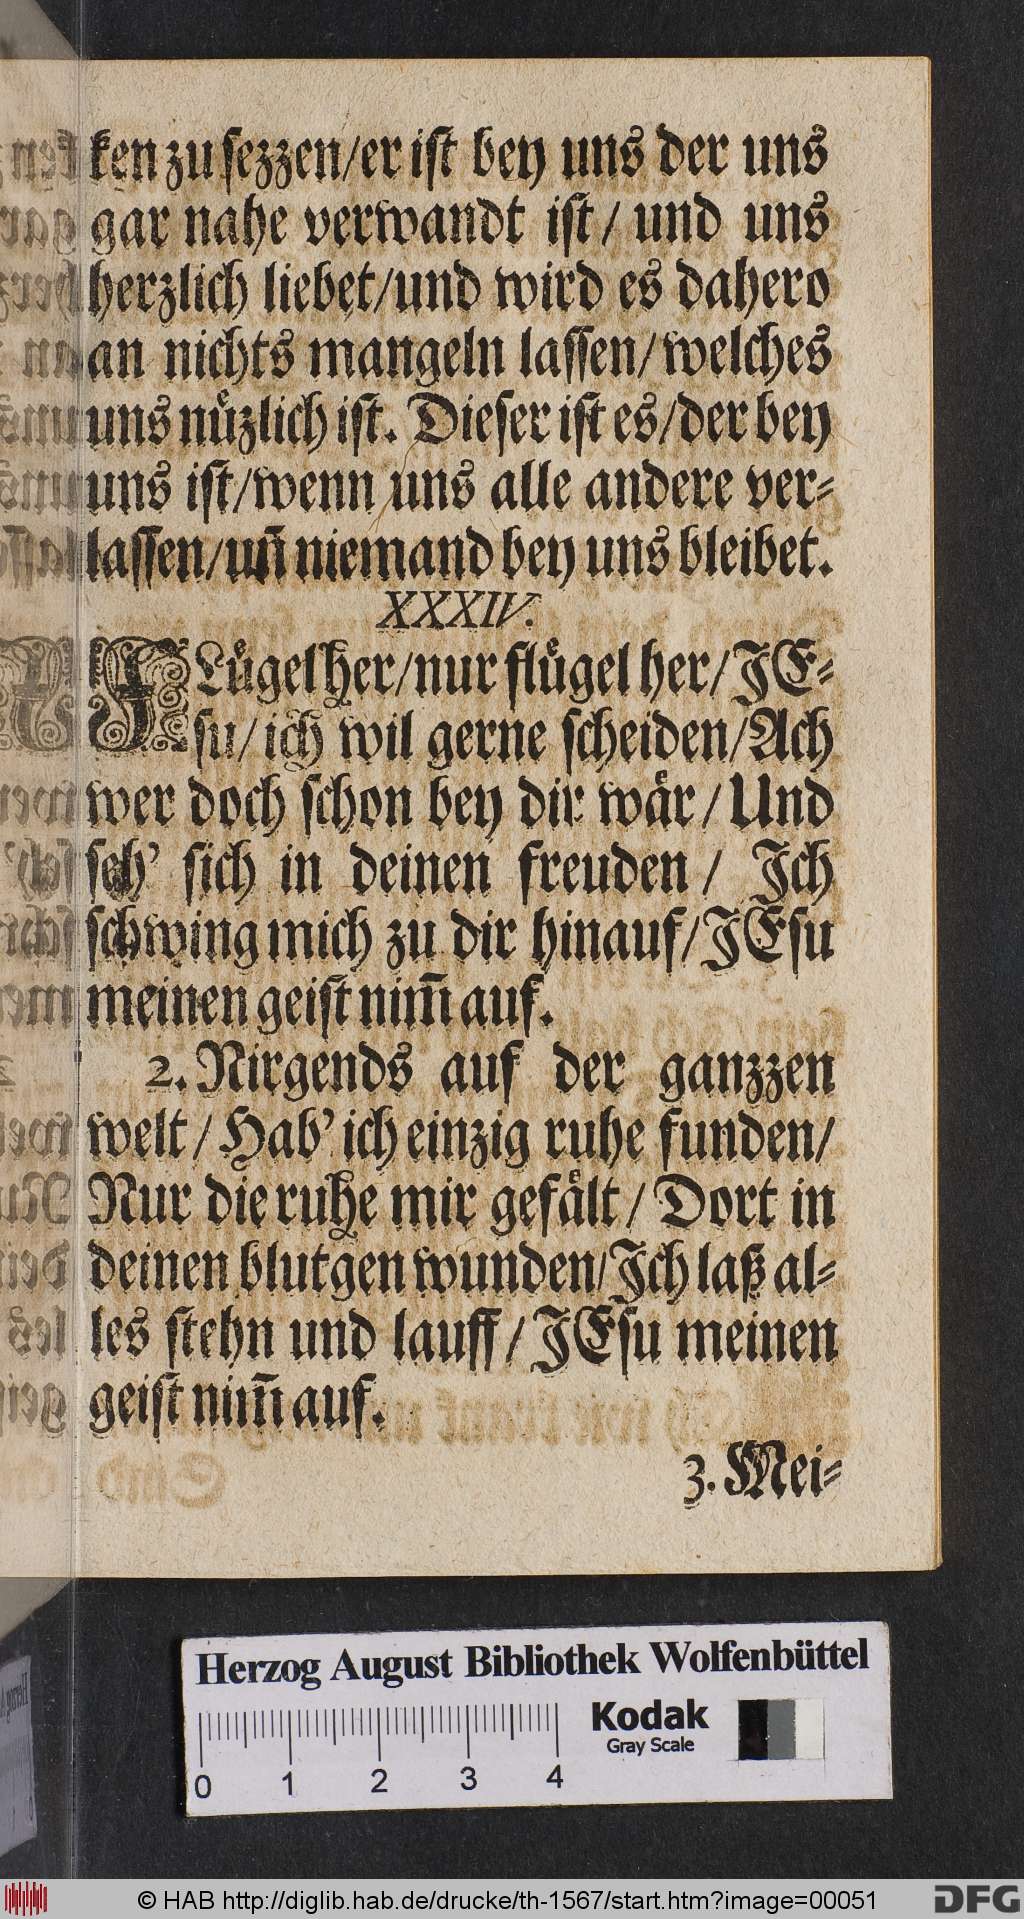 ken zu sezzen/er ist bey uns der uns
gar nahe verwandt ist/ und uns
herzlich liebet/und wird es dahero
an nichts mangeln lassen/welches
uns nützlich ist. Dieser ist es/der bey
uns ist/wenn uns alle andere ver-
lassen/uñ niemand bey uns bleibet.
XXXIV.
FLügel her/nur flügel her/JE-
su/ich wil gerne scheiden/Ach
wer doch schon bey dir wär/Und
seh' sich in deinen freuden/ Ich
schwing mich zu dir hinauf/JEsu
meinen geist nim̃ auf.
2. Nirgends auf der ganzzen
welt/Hab' ich einzig ruhe funden/
Nur die ruhe mir gefält/Dort in
deinen blutgen wunden/Ich laß al-
les stehn und lauff/JEsu meinen
geist nim̃ auf.
3. Mei-
Herzog August Bibliothek Wolfenbüttel
Kodak
Gray Scale
0 1 2 3 4
© HAB http://diglib.hab.de/drucke/th-1567/start.htm?image=00051
DFG